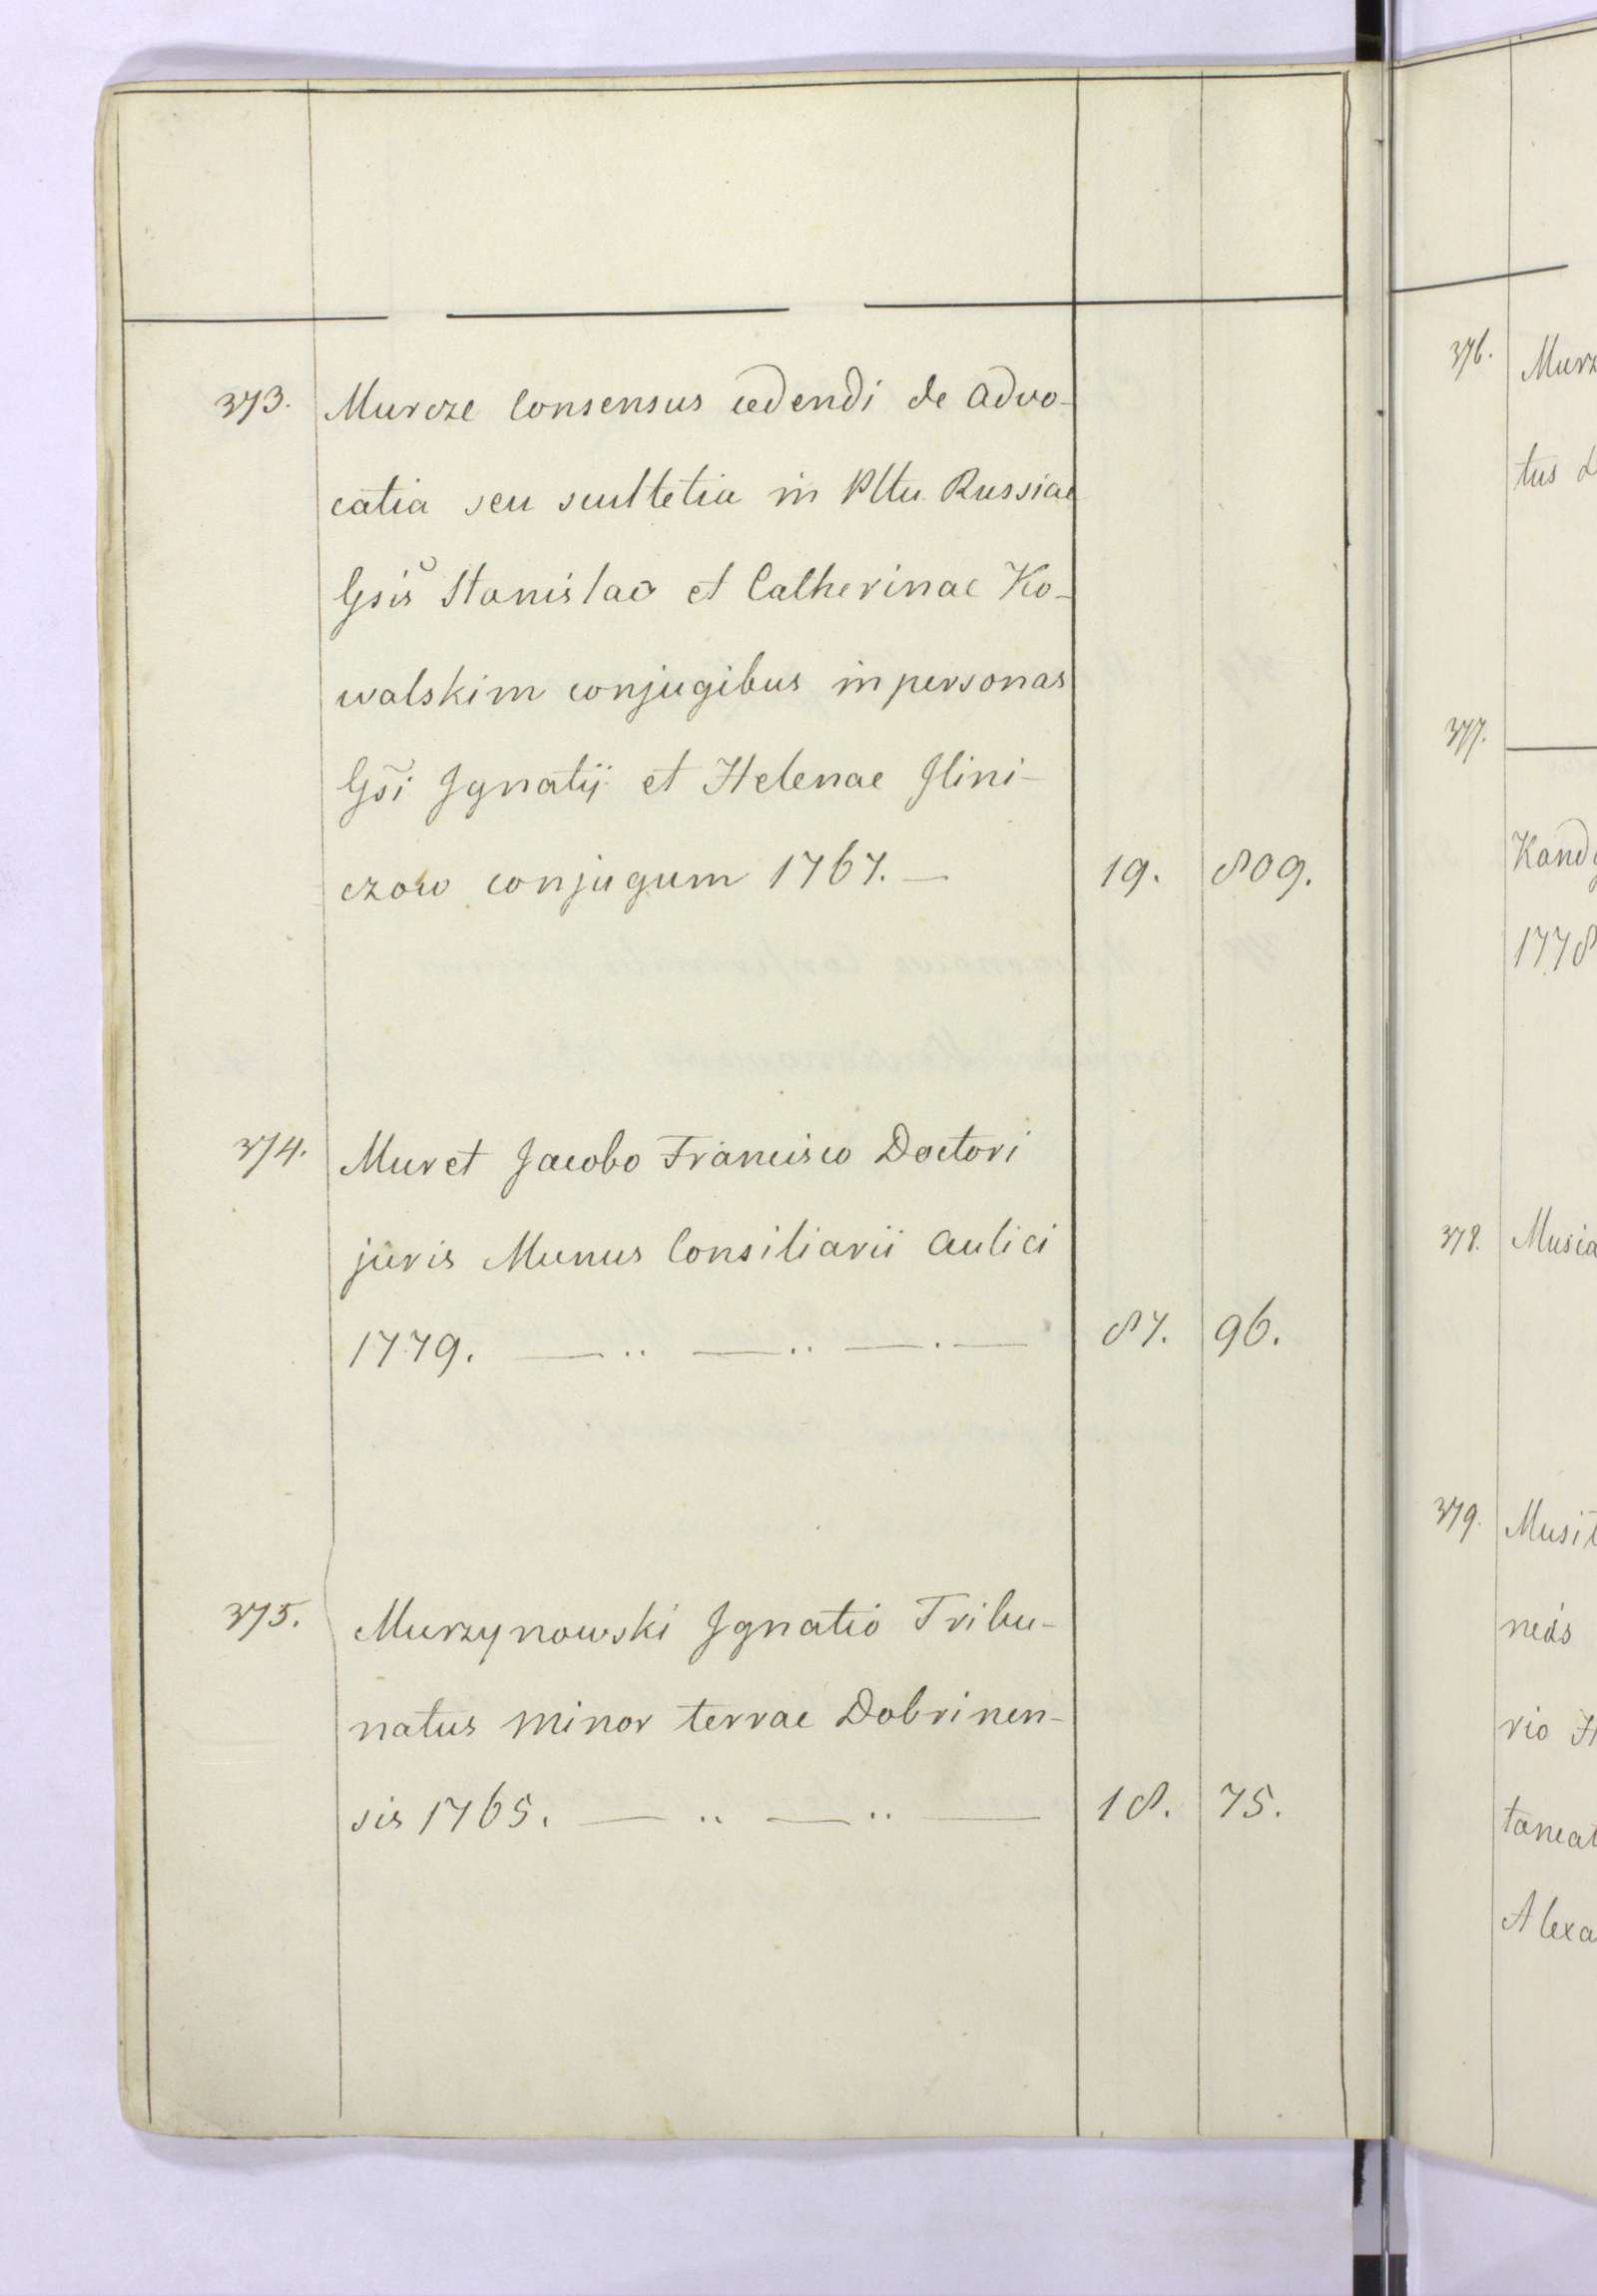 373. Murcze Consensus cedendi de Advo-
catia seu scultetia in Pltu Russiae
Gsis Stanislao et Catherinae Ko-
walskim conjugibus in personas
Gsi Ignatij et Helenae Ilini-
czow conjugum 1767. — 19. 809.
374. Muret Jacobo Francisco Doctori
juris Munus Consiliarii Aulici
1779. — .. — .. — . — 87. 96.
375. Murzynowski Ignatio Tribu-
natus minor terrae Dobrinen-
sis 1765. — .. — .. — 18. 75.
376. Murz
tus
377. —
Kand
1778
378. Musia
379. Musi
neis
rio
taneat
Alexa